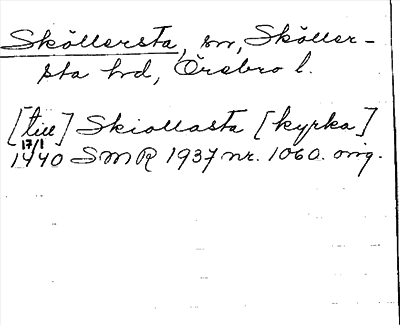 Sköllersta, sn, Sköller-
sta hd, Örebro l.
[till] Skiollasta [kyrka]
17/1
1440 SMR 1937 nr. 1060. orig.